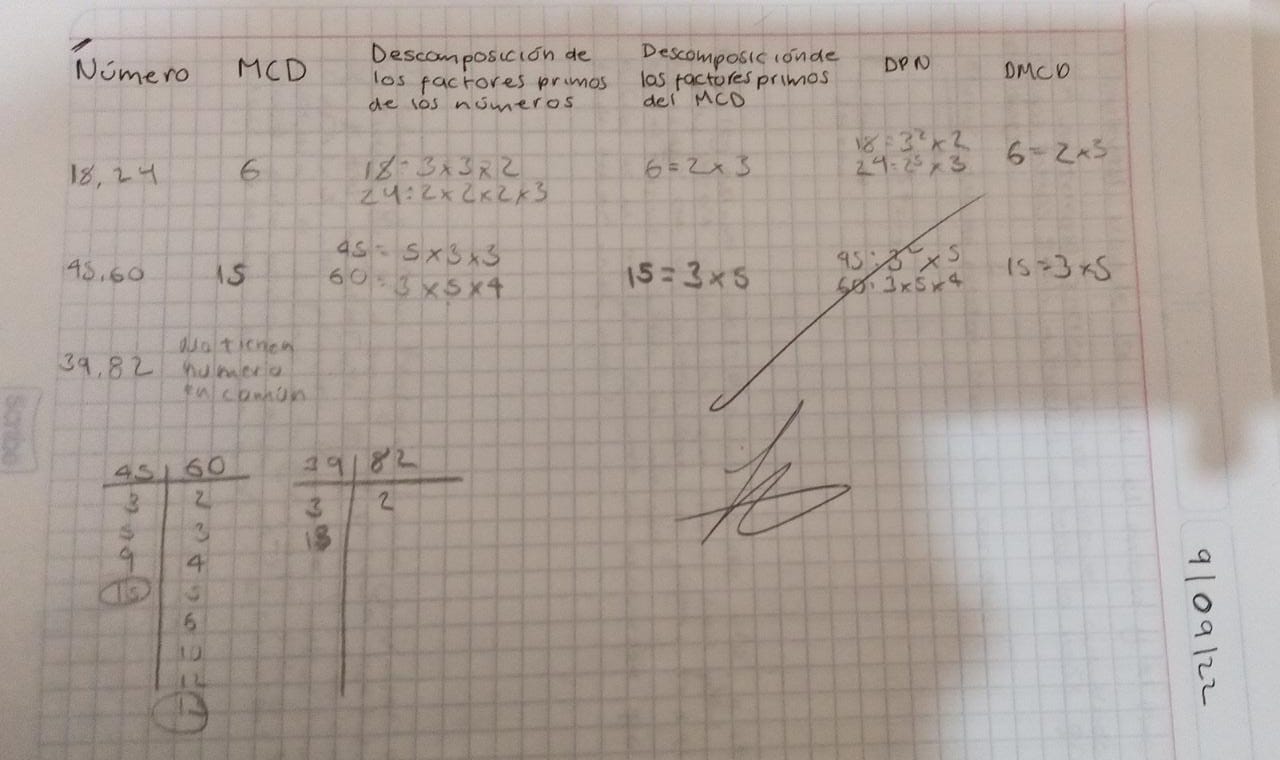 Número MCD Descomposición de los factores primos de los números Descomposición de los factores primos del MCD DPN DMCD
18, 24 6 18=3x3x2 6=2x3 18=3²x2 6=2x3
24:2x2x2x3 24:2³x3
45,60 15 45=5x3x3 15=3x5 45:3²x5 15=3x5
60=3x5x4 60:3x5x4
39,82 No tienen
numero
en común
45 60 39 82
3 2 3 2
5 3 13
9 4
15 5
6
10
12
9/09/22